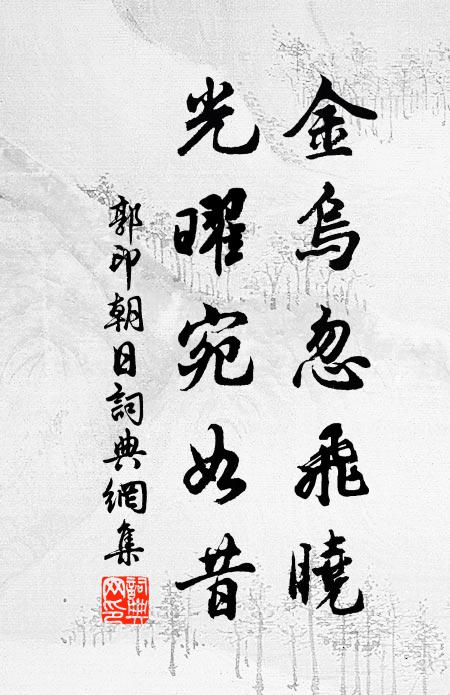 金烏忽飛曉
光曜宛如昔
郭印朝日詞典網集
詞典網印